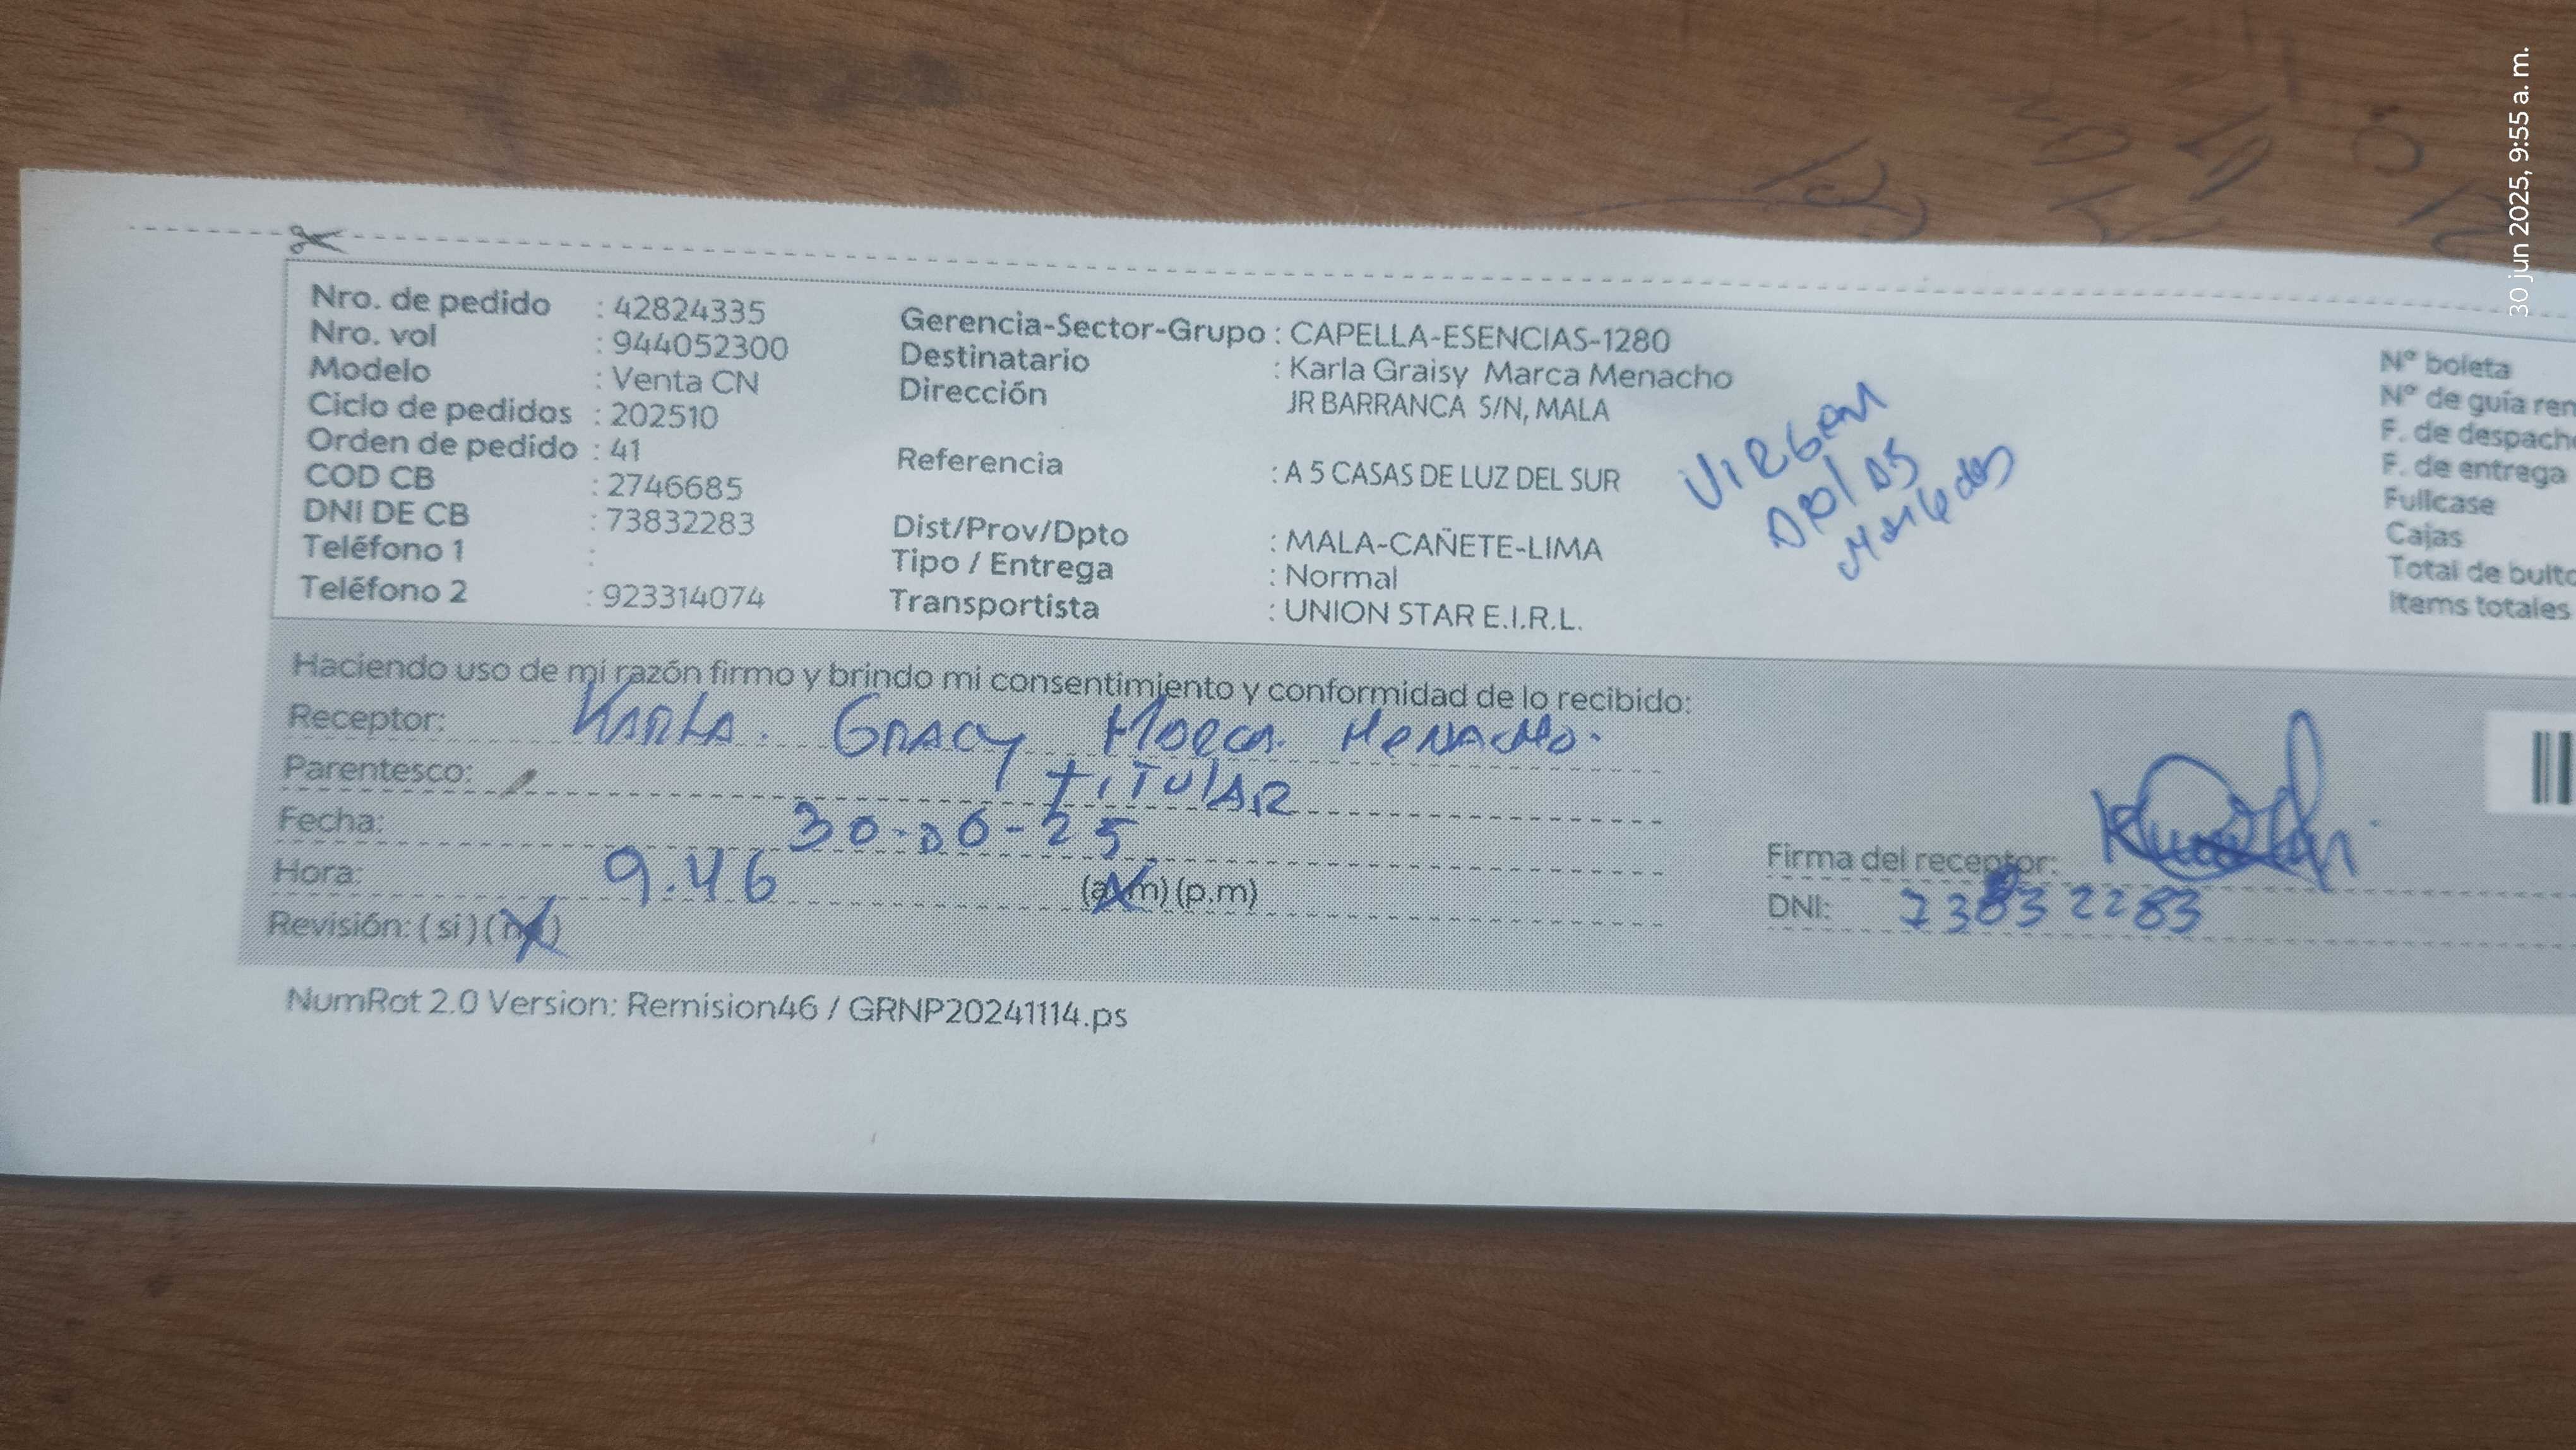 30 jun 2025, 9:55 a. m.
Nro. de pedido : 42824335
Nro. vol : 944052300
Modelo : Venta CN
Ciclo de pedidos : 202510
Orden de pedido : 41
COD CB : 2746685
DNI DE CB : 73832283
Teléfono 1 :
Teléfono 2 : 923314074
Gerencia-Sector-Grupo : CAPELLA-ESENCIAS-1280
Destinatario : Karla Graisy Marca Menacho
Dirección JR BARRANCA S/N, MALA
Referencia : A 5 CASAS DE LUZ DEL SUR
Dist/Prov/Dpto : MALA-CAÑETE-LIMA
Tipo / Entrega : Normal
Transportista : UNION STAR E.I.R.L.
VIRGEN
Nº boleta
Nº de guía ren
F. de despach
F. de entrega
Fullcase
Cajas
Total de bulto
Items totales
Haciendo uso de mi razón firmo y brindo mi consentimiento y conformidad de lo recibido:
Receptor: KARLA. GRACY MARCA. MENACHO.
Parentesco: TITULAR
Fecha: 30-06-25
Hora: 9.46 (a.m) (p.m)
Revisión: ( si ) ( no )
Firma del receptor:
DNI: 73832283
NumRot 2.0 Version: Remision46 / GRNP20241114.ps